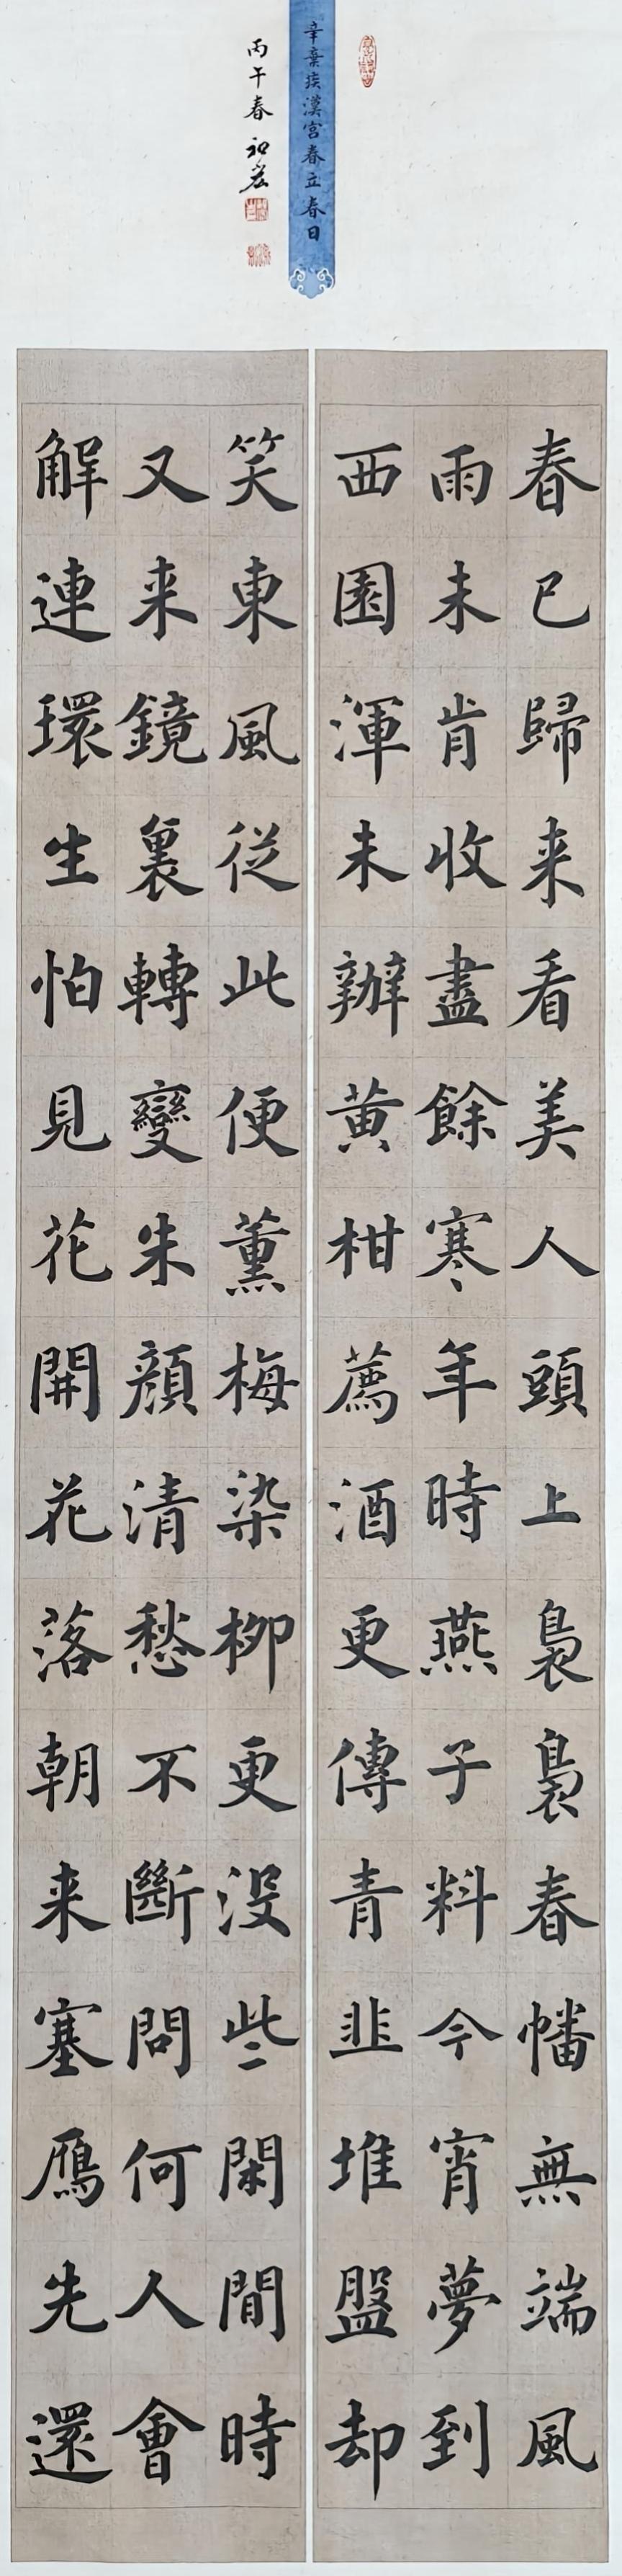 辛棄疾漢宮春立春日
丙午春
春已歸来看美人頭上裊裊春幡無端風
雨未肯收盡餘寒年時燕子料今宵夢到
西園渾未辦黄柑薦酒更傳青韭堆盤却
笑東風從此便薰梅染柳更没些閑間時
又来鏡裏轉變朱顔清愁不斷問何人會
解連環生怕見花開花落朝来塞鴈先還